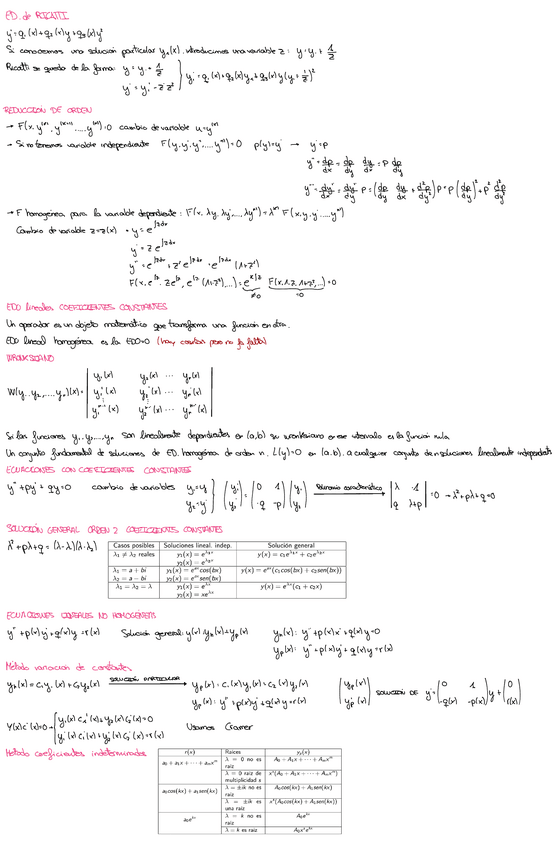 ED. de RICATTI
y' = q₁(x) + q₂(x)y + q₃(x)y²
Si conocemos una solución particular y₁(x), introducimos una variable z: y = y₁ + 1/z
Ricatti se queda de la forma: y = y₁ + 1/z
REDUCCIÓN DE ORDEN
→ F(x, y⁽ⁿ⁾, y⁽ⁿ⁺¹⁾, ..., y⁽ᵐ⁾) = 0 cambio de variable u = y⁽ⁿ⁾
→ Si no tenemos variable independiente F(y, y', y'', ..., y⁽ⁿ⁾) = 0 p(y) = y' → y' = p
y'' = dp/dx = dp/dy dy/dx = p dp/dy
→ F homogénea para la variable dependiente:
Cambio de variable z = z(x) → y = e^∫zdx
y' = z e^∫zdx
EDO lineales COEFICIENTES CONSTANTES
Un operador es un objeto matemático que transforma una función en otra.
EDO lineal homogénea es la EDO=0
WRONSKIANO
W(y₁, y₂, ..., yₙ)(x) = | y₁(x) y₂(x) ... yₙ(x) |
| y₁'(x) y₂'(x) ... yₙ'(x) |
Si las funciones y₁, y₂, ..., yₙ son linealmente dependientes en (a,b) su wronskiano en ese intervalo es la función nula
Un conjunto fundamental de soluciones de ED. homogénea de orden n, L(y)=0 en (a,b), a cualquier conjunto de n soluciones linealmente independientes
ECUACIONES CON COEFICIENTES CONSTANTES
y'' + py' + qy = 0 cambio de variables y₁ = y
Polinomio característico
= 0 → λ² + pλ + q = 0
SOLUCIÓN GENERAL ORDEN 2 COEFICIENTES CONSTANTES
λ² + pλ + q = (λ-λ₁)(λ-λ₂)
Casos posibles Soluciones lineal. indep. Solución general
λ₁ ≠ λ₂ reales y₁(x) = e^λ₁x y(x) = c₁e^λ₁x + c₂e^λ₂x
y₂(x) = e^λ₂x
λ₁ = a + bi y₁(x) = e^ax cos(bx) y(x) = e^ax(c₁cos(bx) + c₂sen(bx))
λ₂ = a − bi y₂(x) = e^ax sen(bx)
λ₁ = λ₂ = λ y₁(x) = e^λx y(x) = e^λx(c₁ + c₂x)
y₂(x) = xe^λx
ECUACIONES LINEALES NO HOMOGÉNEAS
y'' + p(x)y' + q(x)y = r(x) Solución general: y(x) = yₕ(x) + yₚ(x) yₕ(x): y'' + p(x)y' + q(x)y = 0
yₚ(x): y'' + p(x)y' + q(x)y = r(x)
Método variación de constantes
SOLUCIÓN PARTICULAR yₚ(x) = c₁(x)y₁(x) + c₂(x)y₂(x)
yₚ(x): y'' + p(x)y' + q(x)y = r(x)
SOLUCIÓN DE
y₁(x)c₁'(x) + y₂(x)c₂'(x) = 0
y₁'(x)c₁'(x) + y₂'(x)c₂'(x) = r(x)
Usamos Cramer
Método coeficientes indeterminados
r(x) Raíces yₚ(x)
a₀ + a₁x + ··· + aₘxᵐ λ = 0 no es raíz A₀ + A₁x + ··· + Aₘxᵐ
λ = 0 raíz de multiplicidad s xˢ(A₀ + A₁x + ··· + Aₘxᵐ)
a₀cos(kx) + a₁sen(kx) λ = ±ik no es raíz A₀cos(kx) + A₁sen(kx)
λ = ±ik es una raíz xˢ(A₀cos(kx) + A₁sen(kx))
a₀e^kx λ = k no es raíz A₀e^kx
λ = k es raíz A₀xˢe^kx